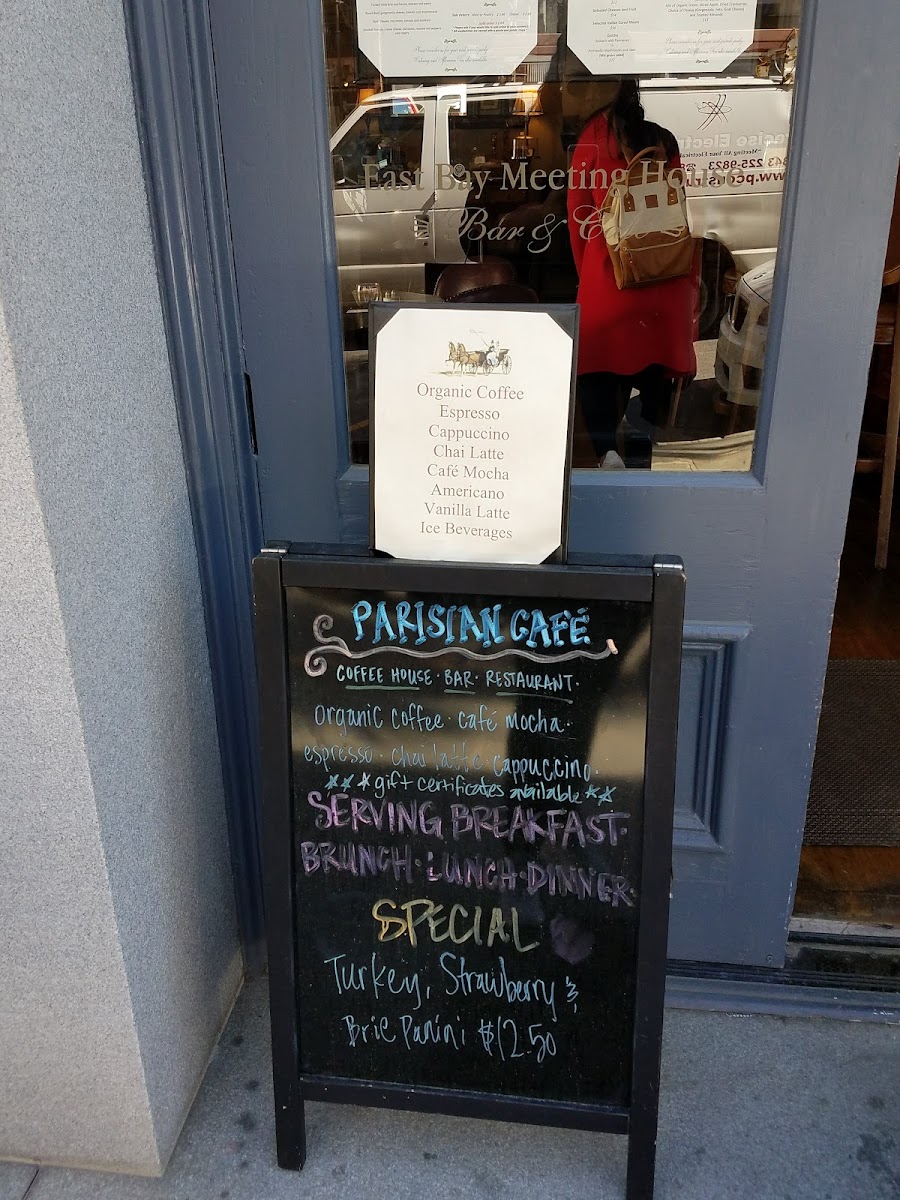 East Bay Meeting House
Bar & C
Organic Coffee
Espresso
Cappuccino
Chai Latte
Café Mocha
Americano
Vanilla Latte
Ice Beverages
PARISIAN CAFÉ
COFFEE HOUSE · BAR · RESTAURANT ·
organic coffee · café mocha ·
espresso · chai latte cappuccino ·
*** gift certificates available **
SERVING BREAKFAST ·
BRUNCH · LUNCH · DINNER ·
SPECIAL
Turkey, Strawberry &
Brie Panini $12.50